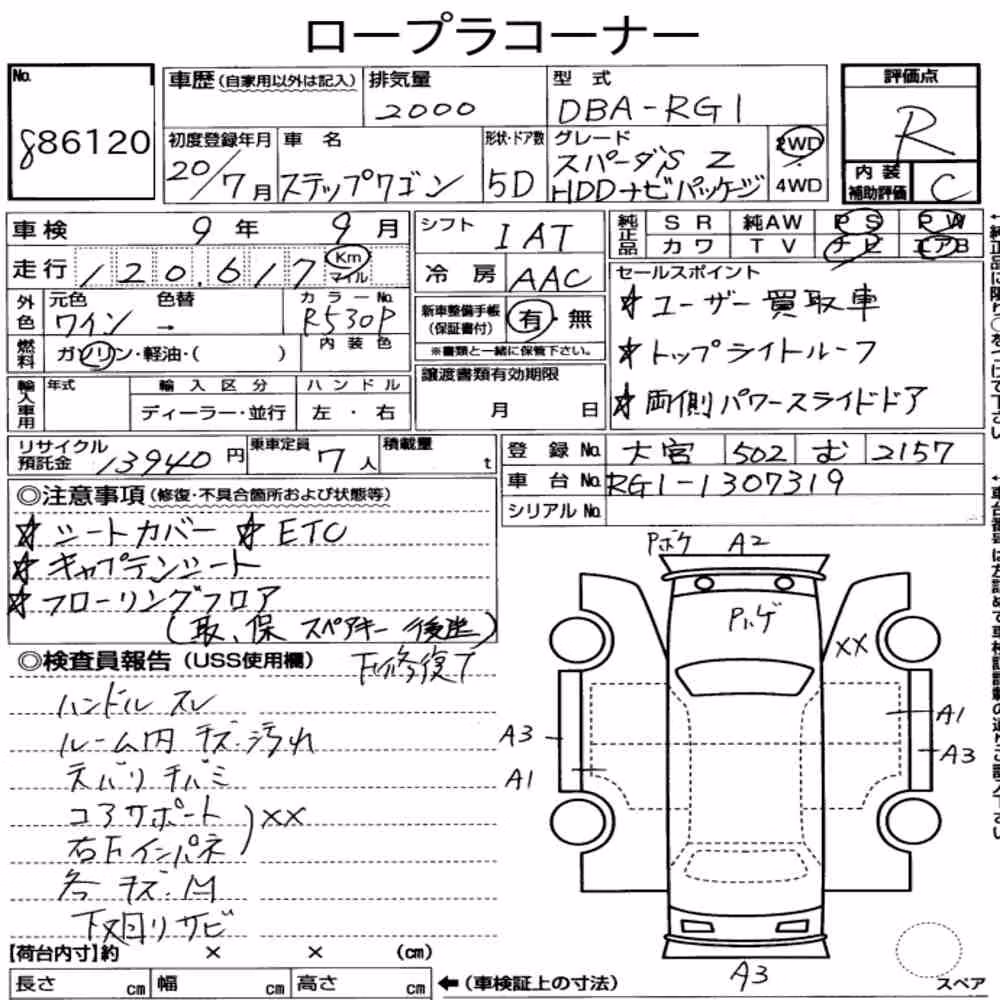 ロープラコーナー
No.
886120
車歴 (自家用以外は記入)
排気量
2000
型 式
DBA-RG1
評価点
R
内装
補助評価
C
初度登録年月
20/7月
車 名
ステップワゴン
形状・ドア数
5D
グレード
スパーダS Z
HDDナビパッケージ
2WD
・
4WD
車検 9年 9月
走行 120,617 Km
マイル
外色
元色 色替
ワイン →
カラーNo.
R530P
燃料
ガソリン・軽油・( )
内装色
輸入車用
年式
輸入区分
ディーラー・並行
ハンドル
左・右
シフト
IAT
冷房
AAC
新車整備手帳
(保証書付)
有・無
※書類と一緒に保管下さい。
譲渡書類有効期限
月 日
純正品
SR 純AW PS PW
カワ TV ナビ エアB
セールスポイント
☆ユーザー買取車
☆トップライトルーフ
☆両側パワースライドドア
リサイクル
預託金
13940円
乗車定員
7人
積載量
t
登録No. 大宮 502 む 2157
車台No. RG1-1307319
シリアルNo.
◎注意事項 (修復・不具合箇所および状態等)
☆シートカバー ☆ETC
☆キャプテンシート
☆フローリングフロア
(取、保 スペアキー 後送)
◎検査員報告 (USS使用欄)
ハンドル スレ
ルーム内 キズ.汚れ
コアサポート
右Fインパネ
XX
各 キズ.M
下廻り サビ
【荷台内寸】約 × × (cm)
長さ cm 幅 cm 高さ cm
←(車検証上の寸法)
A2
XX
A3
A1
A1
A3
A3
スペア